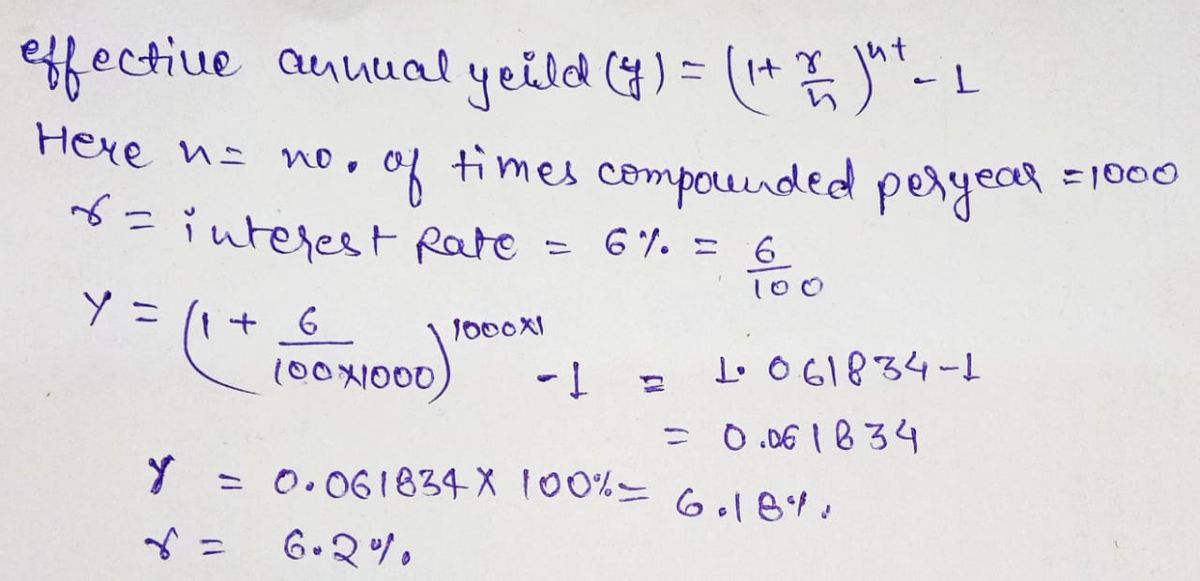 effective annual yeild (y) = (1+ r/n)^nt - 1
Here n = no. of times compounded per year = 1000
r = interest Rate = 6% = 6/100
y = (1 + 6/(100×1000))^1000×1 - 1 = 1.061834-1
= 0.061834
y = 0.061834 × 100% = 6.18%.
r = 6.2%.